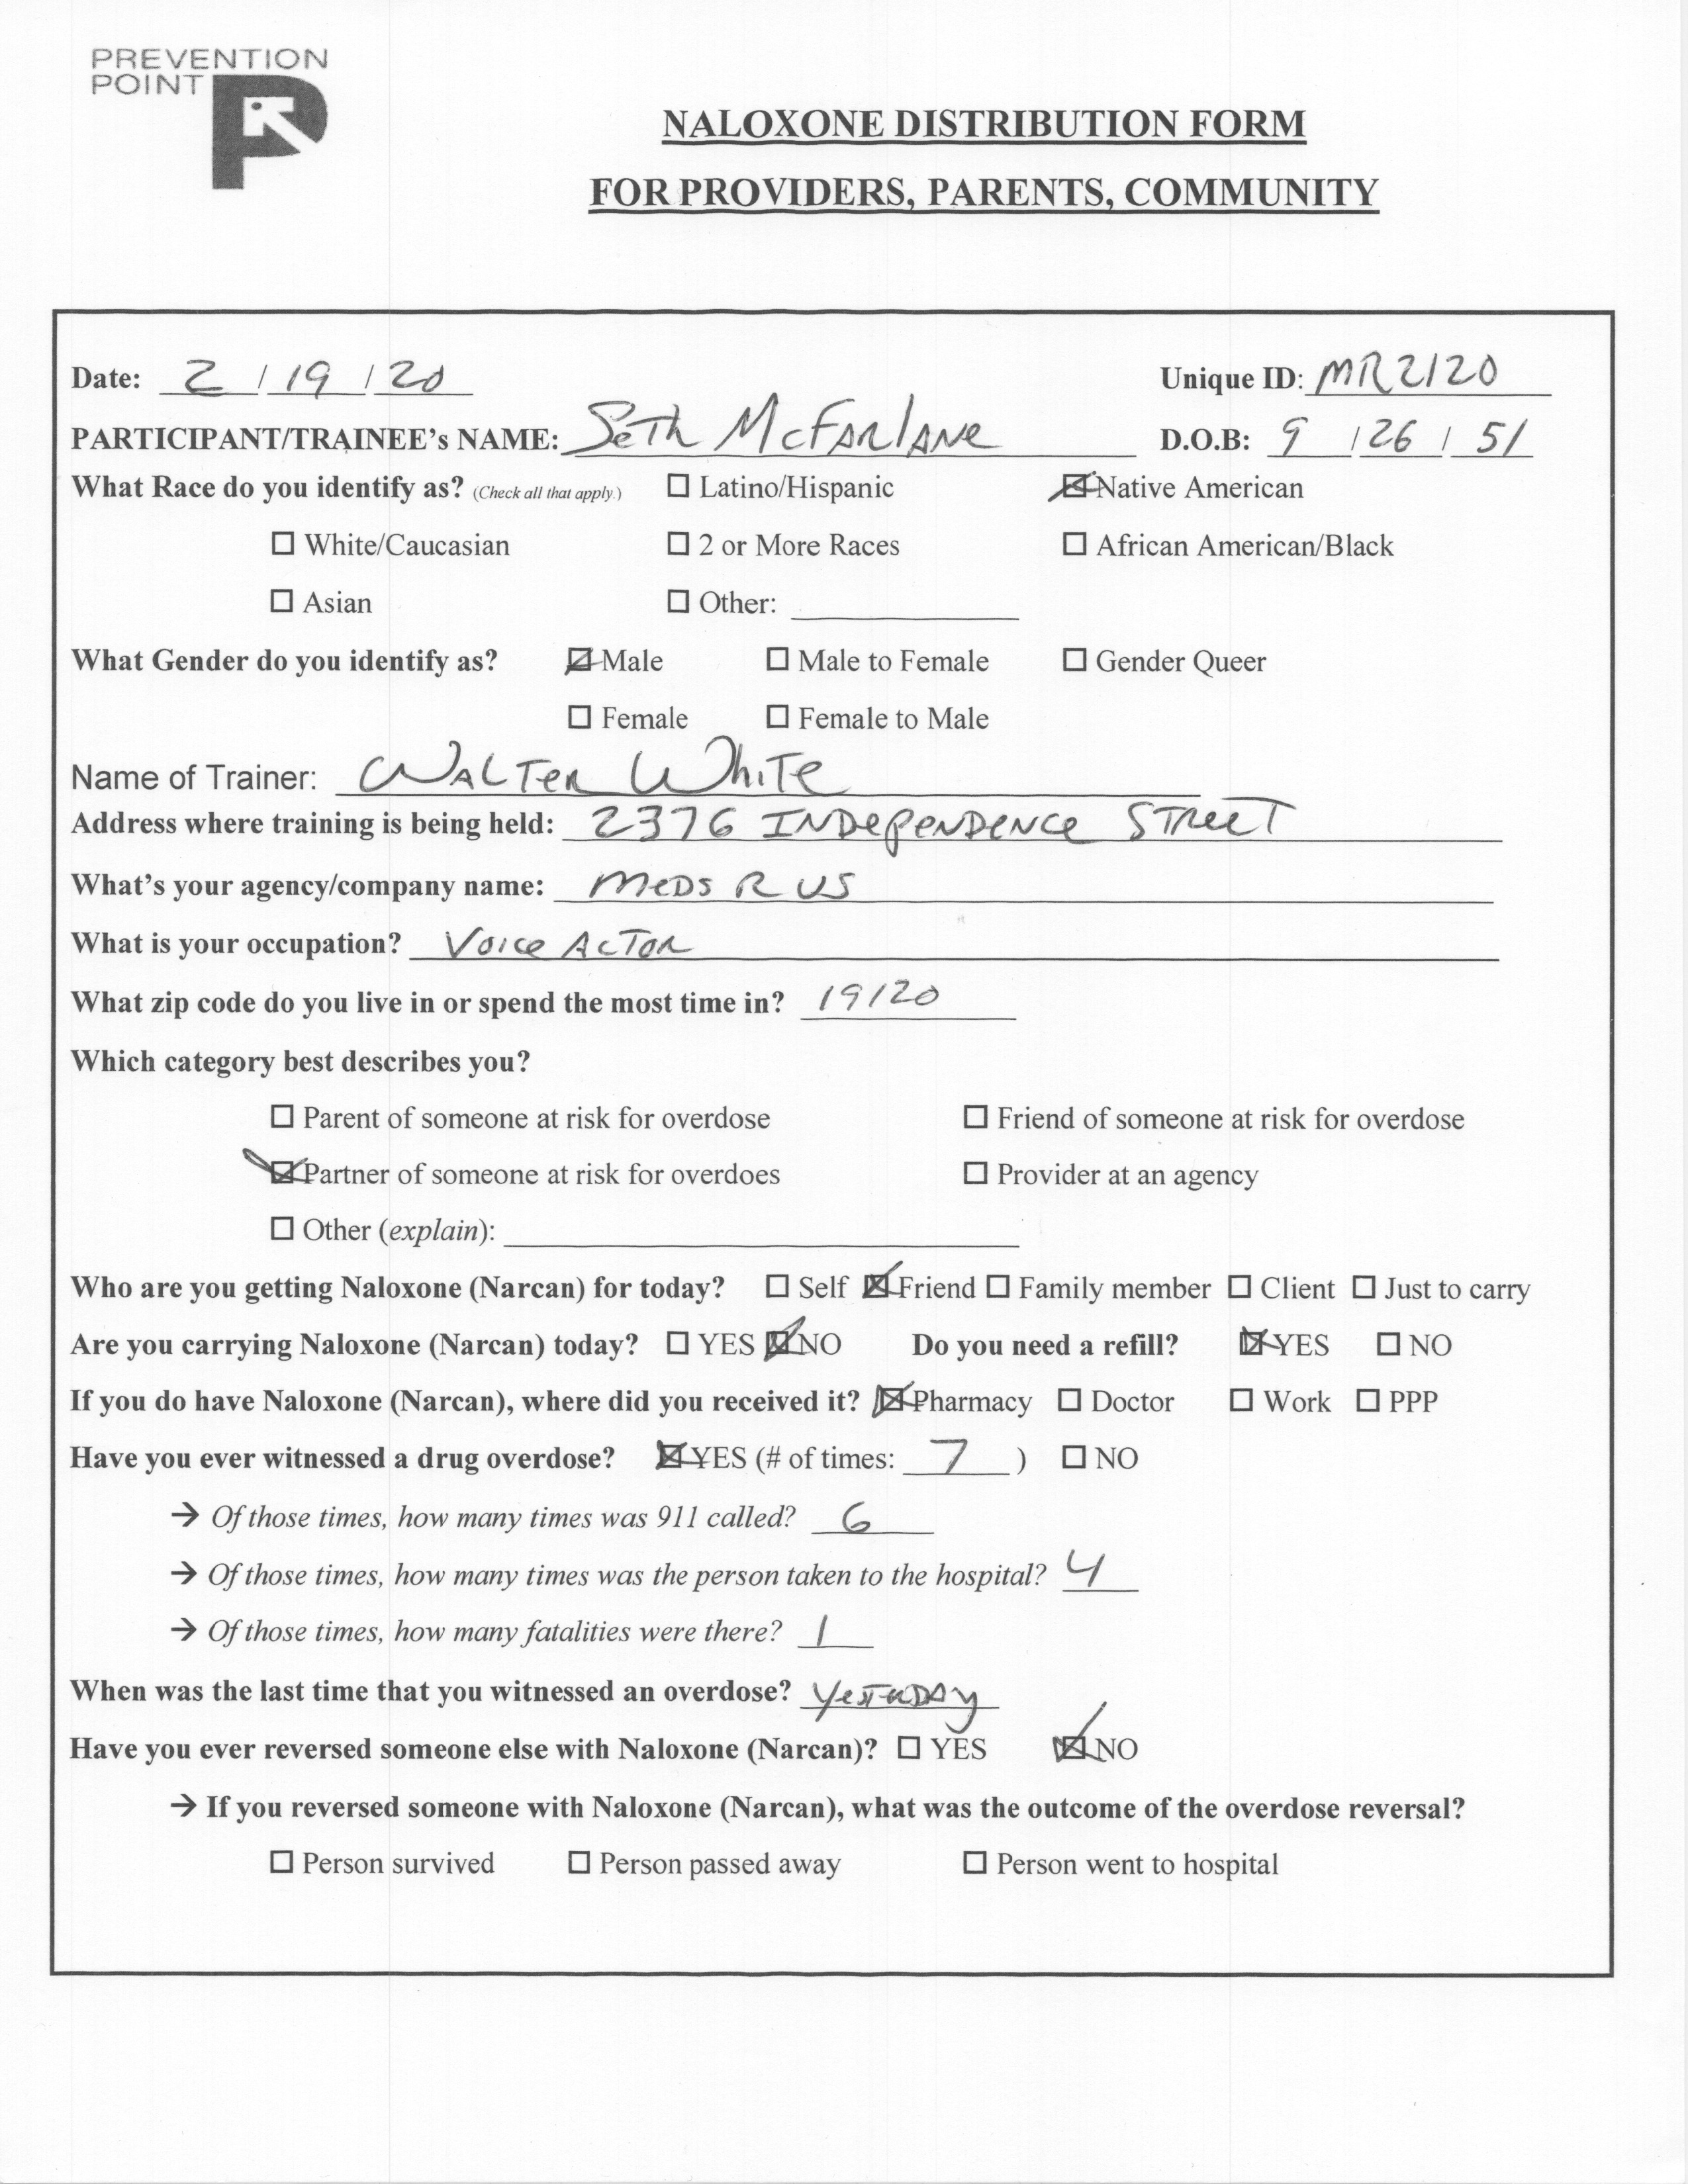 PREVENTION
POINT
NALOXONE DISTRIBUTION FORM
FOR PROVIDERS, PARENTS, COMMUNITY
Date: 2 / 19 / 20 Unique ID: MR2120
PARTICIPANT/TRAINEE's NAME: Seth McFarlane D.O.B: 9 / 26 / 51
What Race do you identify as? (Check all that apply.) ☐ Latino/Hispanic ☒ Native American
☐ White/Caucasian ☐ 2 or More Races ☐ African American/Black
☐ Asian ☐ Other:
What Gender do you identify as? ☒ Male ☐ Male to Female ☐ Gender Queer
☐ Female ☐ Female to Male
Name of Trainer: Walter White
Address where training is being held: 2376 Independence Street
What's your agency/company name: Meds R Us
What is your occupation? Voice Actor
What zip code do you live in or spend the most time in? 19120
Which category best describes you?
☐ Parent of someone at risk for overdose ☐ Friend of someone at risk for overdose
☒ Partner of someone at risk for overdoes ☐ Provider at an agency
☐ Other (explain):
Who are you getting Naloxone (Narcan) for today? ☐ Self ☒ Friend ☐ Family member ☐ Client ☐ Just to carry
Are you carrying Naloxone (Narcan) today? ☐ YES ☒ NO Do you need a refill? ☒ YES ☐ NO
If you do have Naloxone (Narcan), where did you received it? ☒ Pharmacy ☐ Doctor ☐ Work ☐ PPP
Have you ever witnessed a drug overdose? ☒ YES (# of times: 7 ) ☐ NO
→ Of those times, how many times was 911 called? 6
→ Of those times, how many times was the person taken to the hospital? 4
→ Of those times, how many fatalities were there? 1
When was the last time that you witnessed an overdose? Yesterday
Have you ever reversed someone else with Naloxone (Narcan)? ☐ YES ☒ NO
→ If you reversed someone with Naloxone (Narcan), what was the outcome of the overdose reversal?
☐ Person survived ☐ Person passed away ☐ Person went to hospital